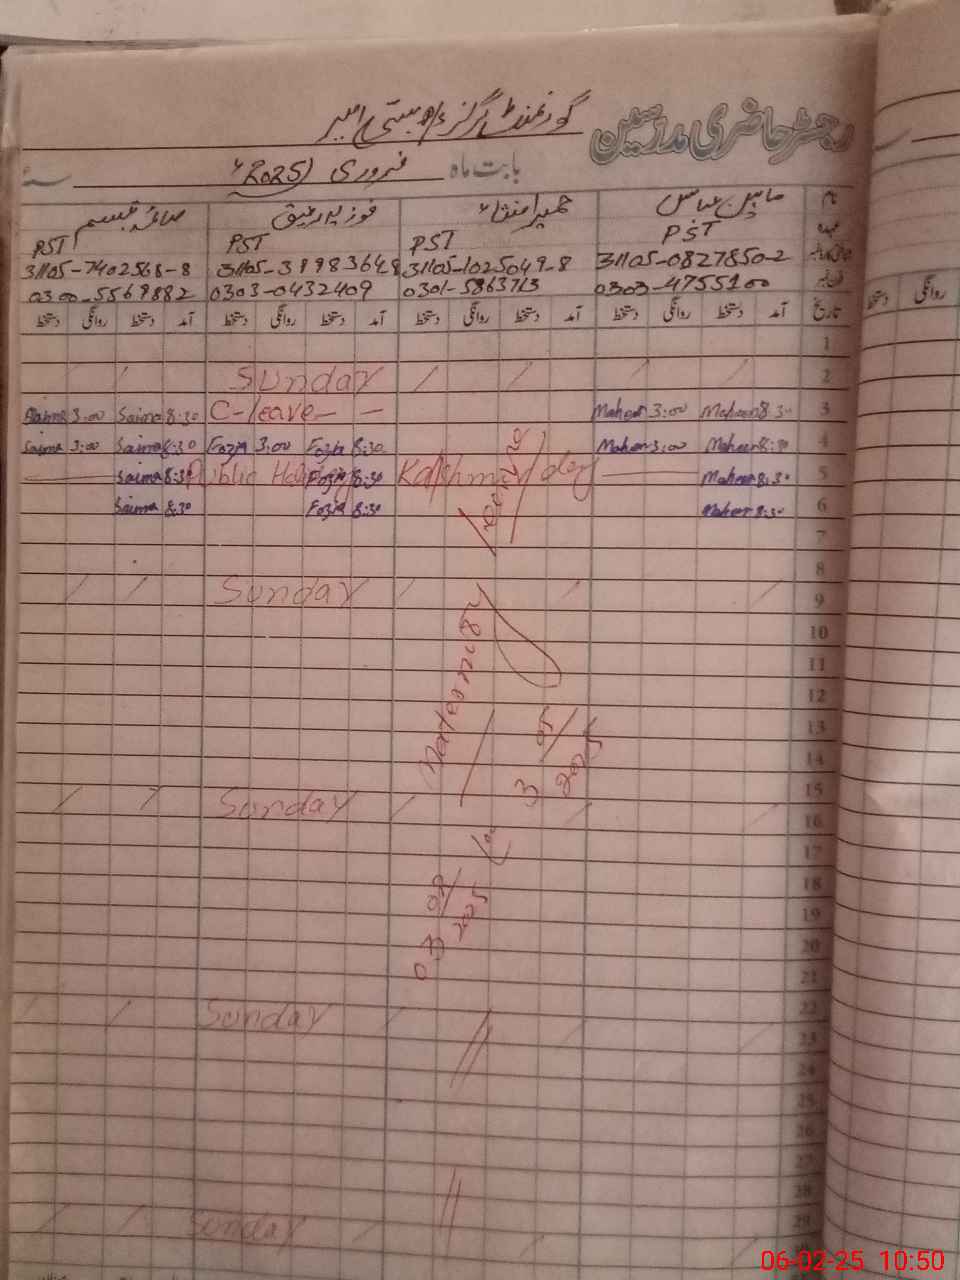 رجسٹر حاضری مدرسین گورنمنٹ گرلز
بابت ماہ فروری 2025ء
نام ماہین صائمہ تبسم
PST PST PST PST
31105-0827850-2 31105-1025049-8 31105-7402568-8
0303-4755100 0303-0432409 0300-5569882
تاریخ آمد دستخط روانگی دستخط آمد دستخط روانگی دستخط آمد دستخط روانگی دستخط آمد دستخط روانگی دستخط
1
2 Sunday
3 Maheen 8:30 Maheen 3:00 C-leave Saima 8:30 Saima 3:00
4 Maheen 8:30 Maheen 3:00 Fozia 8:30 Fozia 3:00 Saima 8:30 Saima 3:00
5 Maheen 8:30 Public Holiday Kashmir day Fozia 8:30 Saima 8:30
6 Maheen 8:30 Fozia 8:30 Saima 8:30
7
8
9 Sunday
10
11
12
13
14
15
16 Sunday
17
18
19
20
21
22
23 Sunday
24
25
26
27
28
29
Sunday
Maternity leave
03/02/2025 to 3/05/2025
روانگی دستخط
06-02-25 10:50